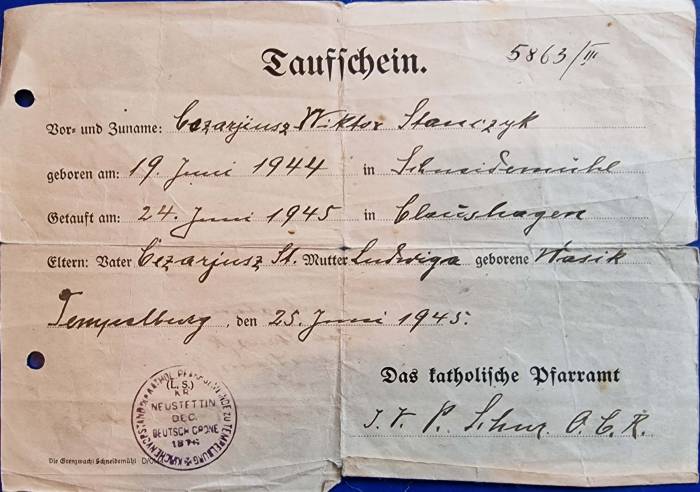 Taufschein.
5863/III
Vor- und Zuname: Cezarjusz Wiktor Stanczyk
geboren am: 19. Juni 1944 in Schneidemühl
Getauft am: 24. Juni 1945 in Claushagen
Eltern: Vater Cezarjusz St. Mutter Ludwiga geborene Wasik
Tempelburg, den 25. Juni 1945.
Das katholische Pfarramt
I. V. P.
KATHOL. PFARRGEMEINDE ZU TEMPELBURG KIRCHENVORSTAND
(L. S.)
KR.
NEUSTETTIN
DEC.
DEUTSCH CRONE
1876
Die Grenzwacht Schneidemühl